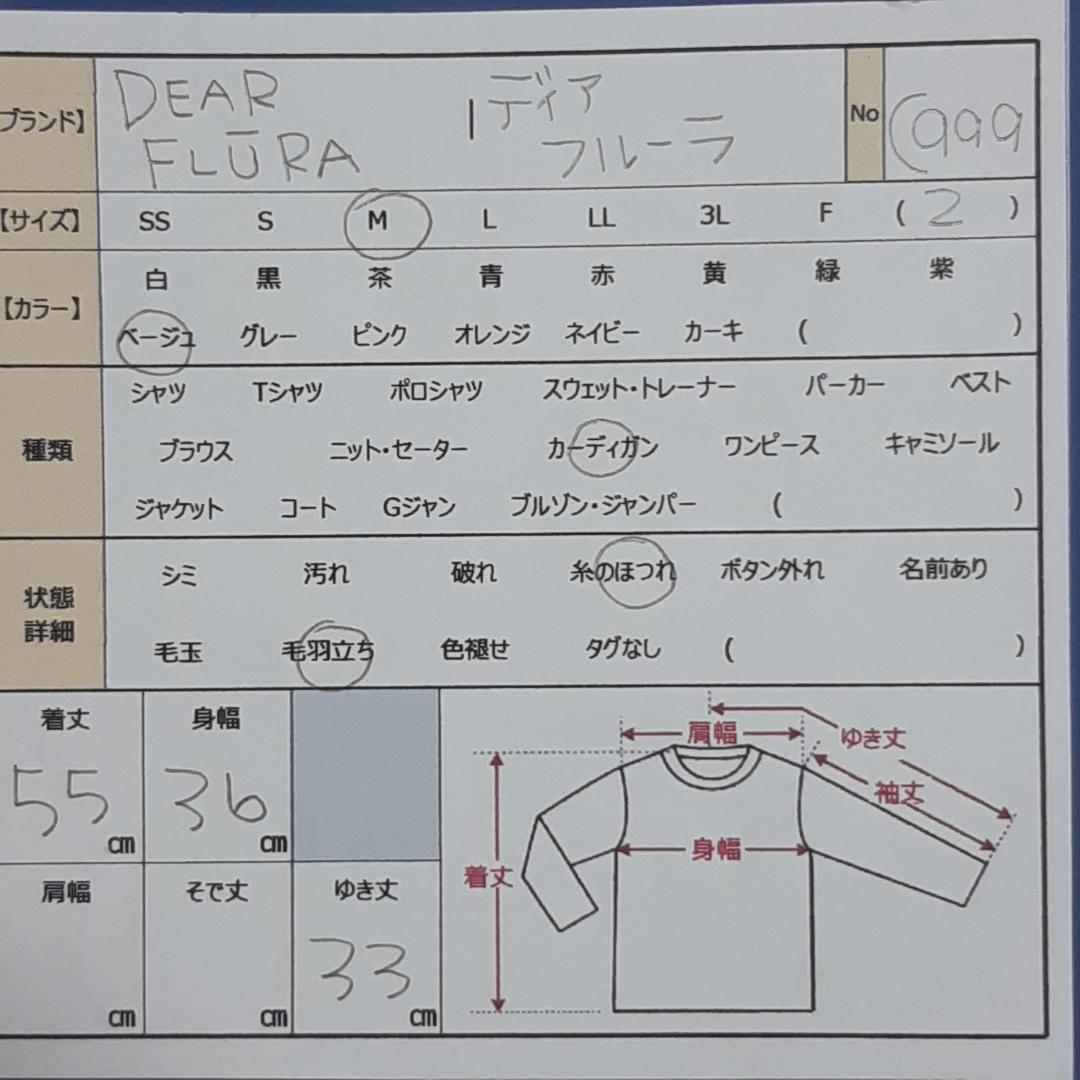 ブランド】 DEAR ディア No C999
FLŪRA フルーラ
【サイズ】 SS S M L LL 3L F ( 2 )
【カラー】 白 黒 茶 青 赤 黄 緑 紫
ベージュ グレー ピンク オレンジ ネイビー カーキ ( )
種類 シャツ Tシャツ ポロシャツ スウェット・トレーナー パーカー ベスト
ブラウス ニット・セーター カーディガン ワンピース キャミソール
ジャケット コート Gジャン ブルゾン・ジャンパー ( )
状態 シミ 汚れ 破れ 糸のほつれ ボタン外れ 名前あり
詳細 毛玉 毛羽立ち 色褪せ タグなし ( )
着丈 身幅
55 cm 36 cm
肩幅 そで丈 ゆき丈
cm cm 33 cm
肩幅 ゆき丈
袖丈
身幅
着丈